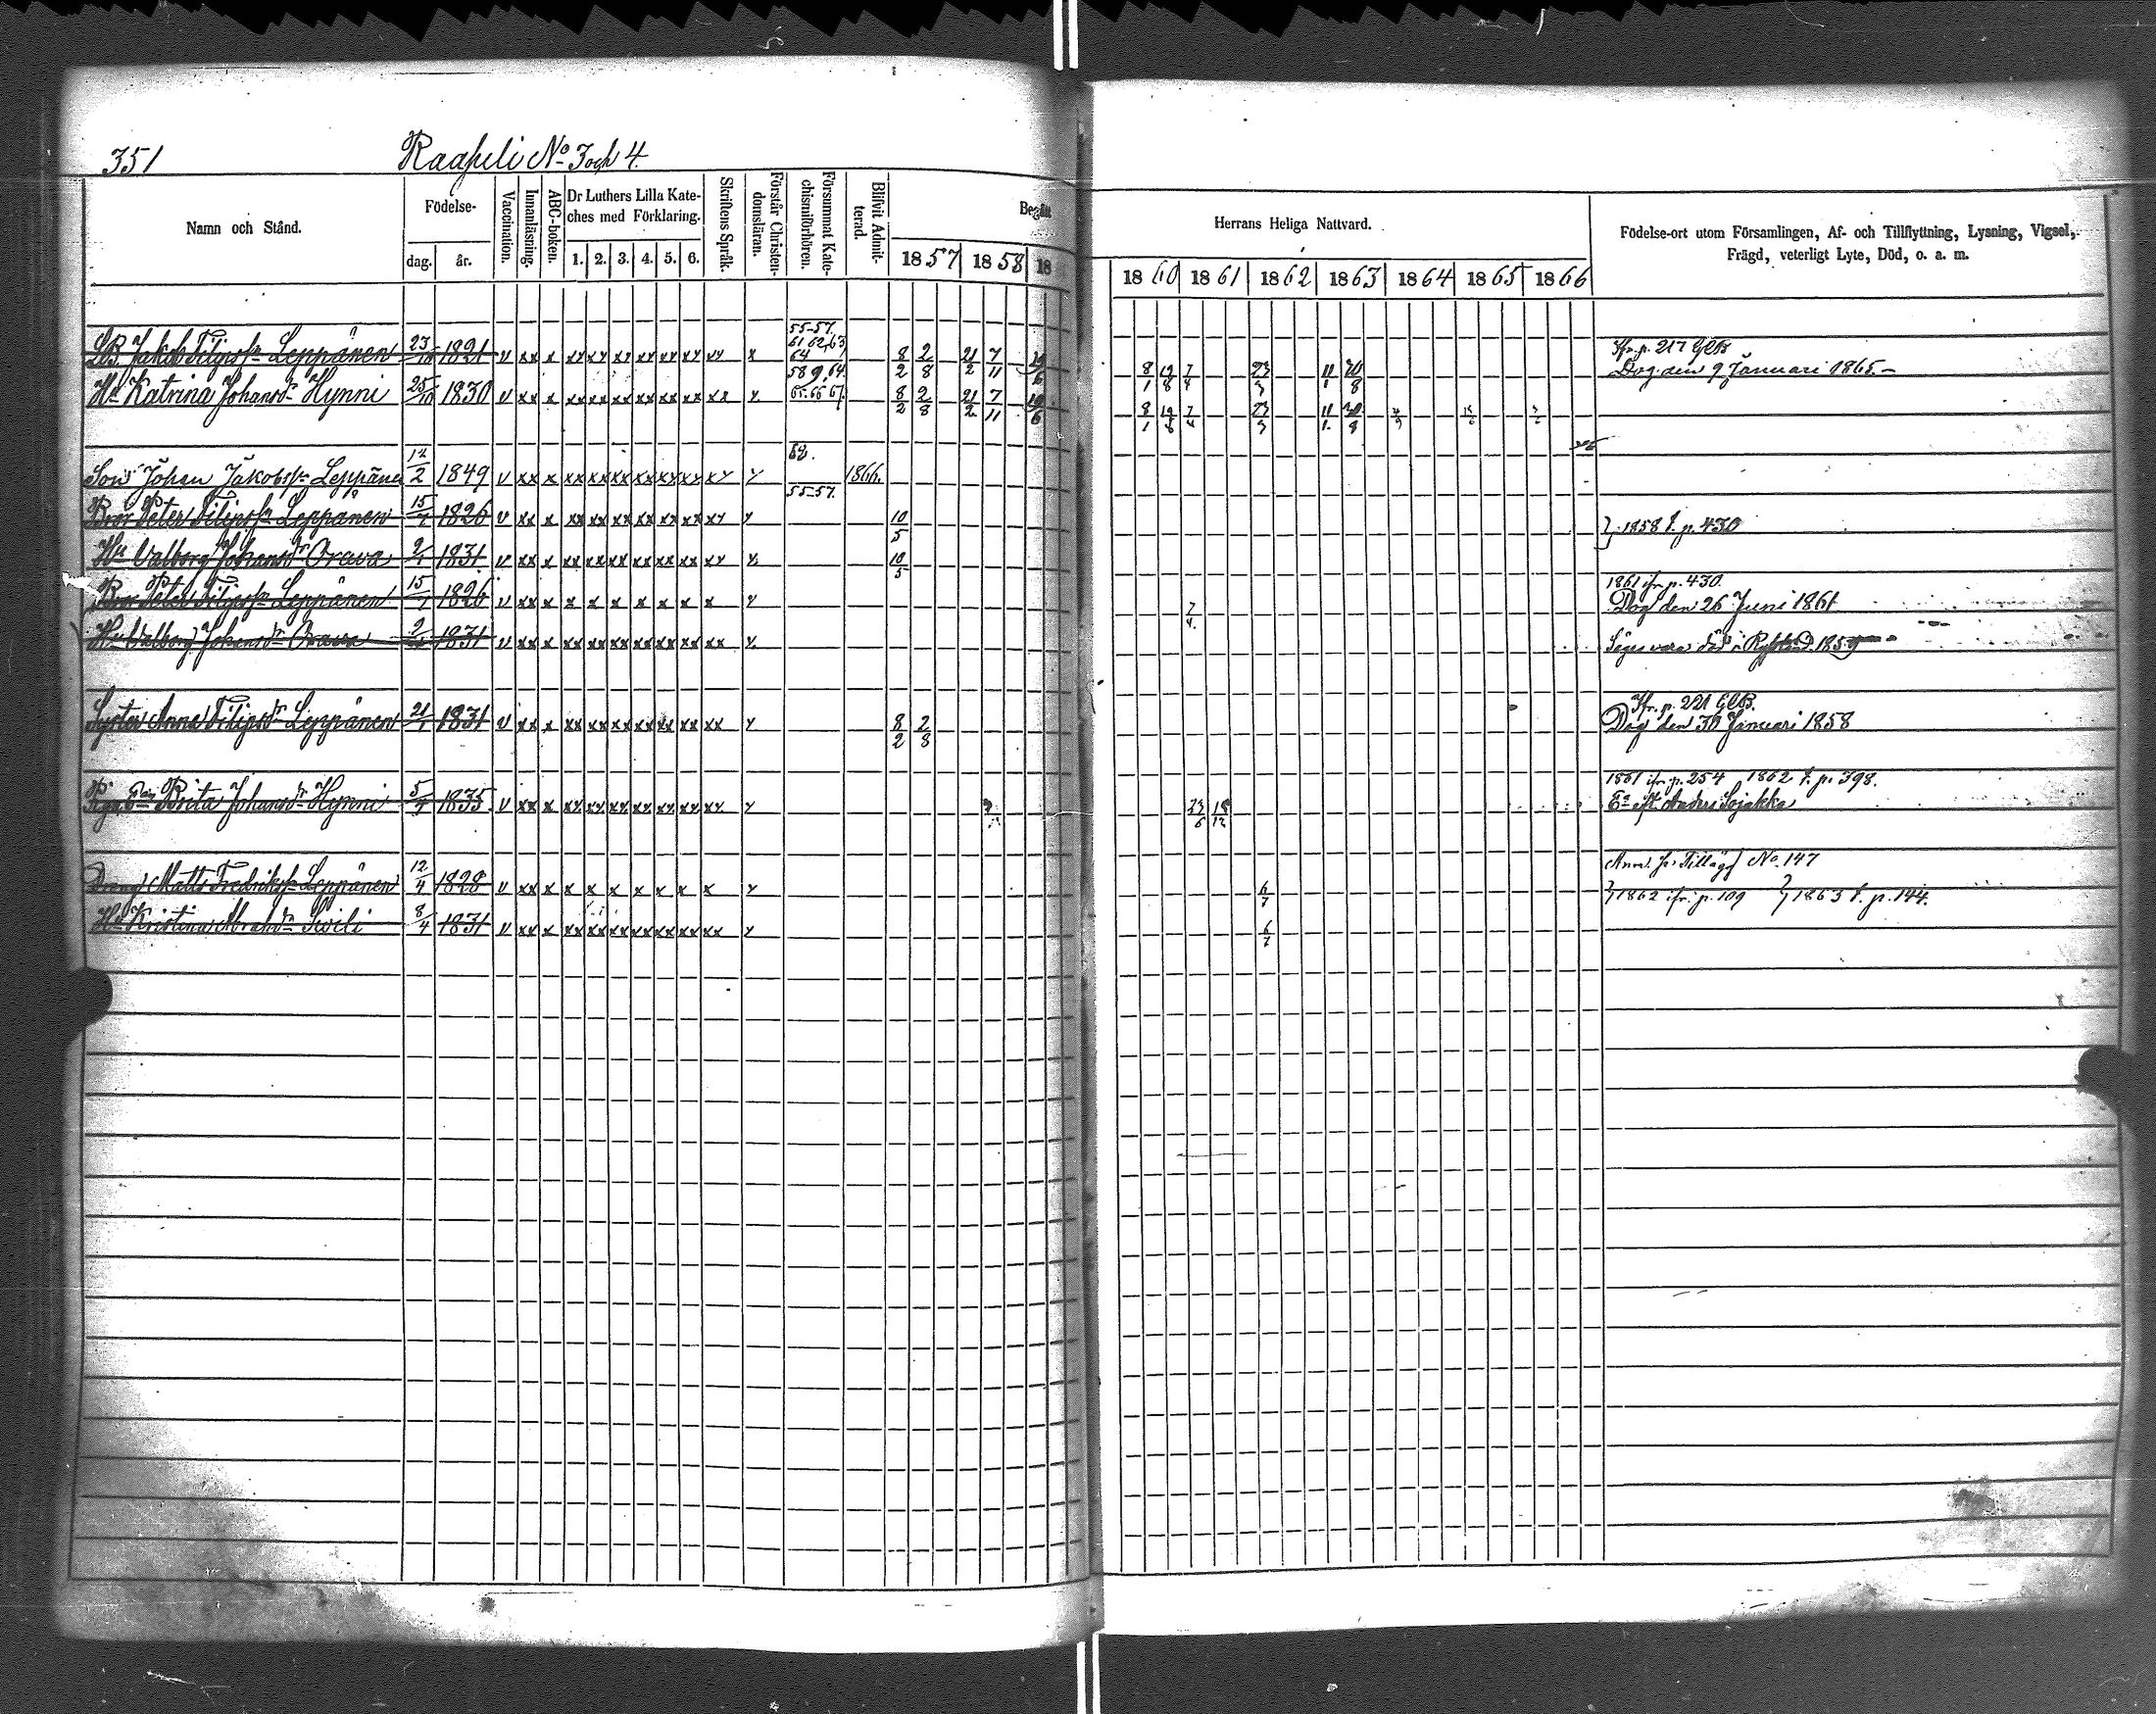 351
Raapeli No 3 och 4.
Namn och Stånd.
Födelse-
dag.
år.
Vaccination.
Innanläsning.
ABC-boken.
Dr Luthers Lilla Kate-
ches med Förklaring.
1. 2. 3. 4. 5. 6.
Skriftens Språk.
Förstår Christen-
domsläran.
Försummat Kate-
chismiförhören.
Blifvit Admit-
terad.
Begått
1857 1858 18
Herrans Heliga Nattvard.
1860 1861 1862 1863 1864 1865 1866
Födelse-ort utom Församlingen, Af- och Tillflyttning, Lysning, Vigsel,
Frägd, veterligt Lyte, Död, o. a. m.
Jakob Filipss:n Leppänen 23/10 1821 v xx x xx xx xx xx xx xx xx x 55-57. 61 62,63 64 8/2 2/8 21/2 7/11
8/1 19/8 7/4 23/3 11/1 30/8
Ifr. p. 217
Dog den 9 Januari 1865.
Hu Katrina Johansdr Hynni 25/10 1830 v xx x xx xx xx xx xx xx xx x 65.66 67. 8/2 2/8 21/2 7/11 19/6
8/1 19/8 7/4 23/3 11/1 30/8
Son Johan Jakobss:n Leppänen 1849 v xx x xx xx xx xx xx xx xx x 1866.
Bror Peter Filipss:n Leppänen 15/7 1826 v xx x xx xx xx xx xx xx xx x 55-57. 10/5
1858 t. p. 430
Hu Valborg Johansdr Orava 1831 v xx x xx xx xx xx xx xx xx x 10/5
Bror Peter Filipss:n Leppänen 15/7 1826 v xx x x x x x x x x x
7/4
1861 ifr. p. 430.
Dog den 26 Juni 1861
Hu Valborg Johansdr Orava 1831 v xx x xx xx xx xx xx xx xx x
Säges vara död i Ryssland 1859
Syster Anna Filipsdr Leppänen 21/1 1831 v xx x xx xx xx xx xx xx xx x 8/2 2/8
Ifr. p. 221
Dog den 30 Januari 1858
Brita Johansdr Hynni 5/4 1835 v xx x xx xx xx xx xx xx xx x
23/6 18/12
1861 ifr. p. 254 1862 t. p. 398.
Dreng Matts Fredrikss:n Leppänen 12/4 1828 v xx x x x x x x x x x
6/7
No. 147
1862 ifr. p. 109 1863 t. p. 144.
Hu Kristina Abrahdr Sivili 8/4 1831 v xx x xx xx xx xx xx xx xx x
6/7